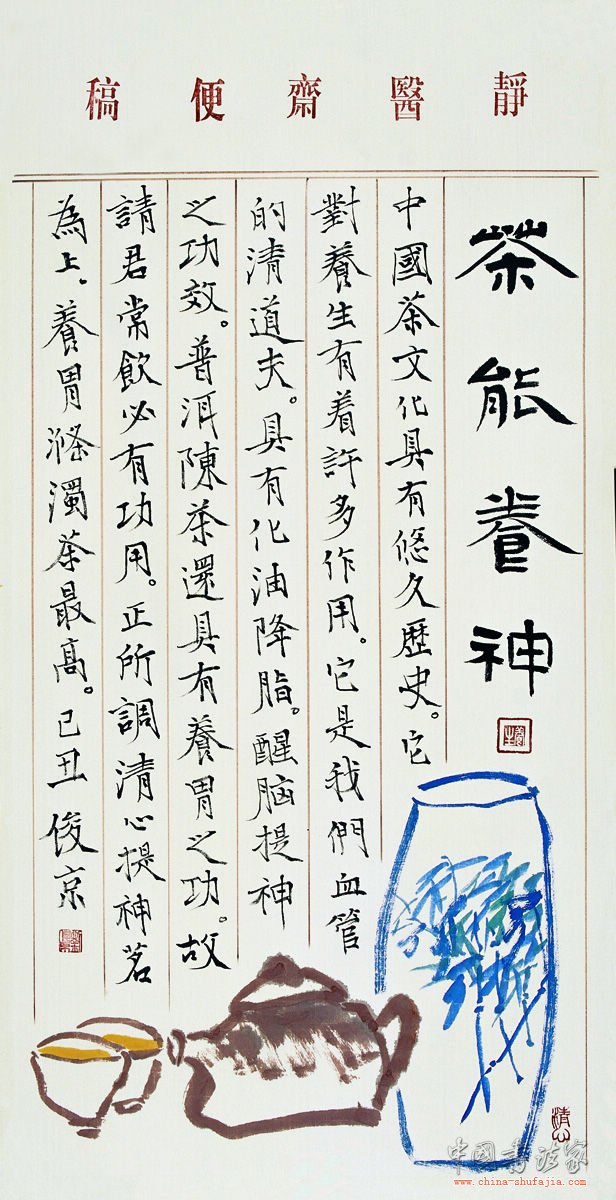 靜醫齋便稿
茶能養神
中國茶文化具有悠久歷史。它
對養生有着許多作用。它是我們血管
的清道夫。具有化油降脂。醒脑提神
之功效。普洱陳茶還具有養胃之功。故
請君常飲必有功用。正所調清心提神茗
為上。養胃滌濁茶最高。己丑 俊京
中國書法家
www.china-shufajia.com